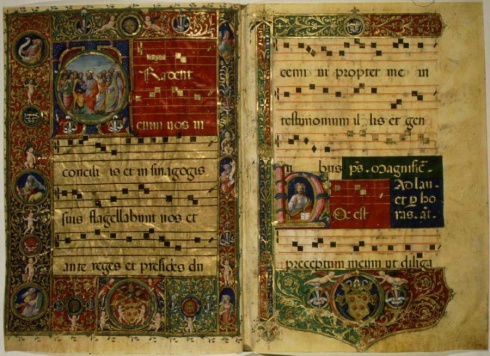 Radent
enim vos in
concili is et in sinagogis
suis flagellabunt vos et
ante reges et presides du
cemi ni propter me in
testimonium il lis et gen
ti bus ps. Magnific.
Ad lau.
et p ho
ras. añ.
Hoc est
preceptum meum ut diliga